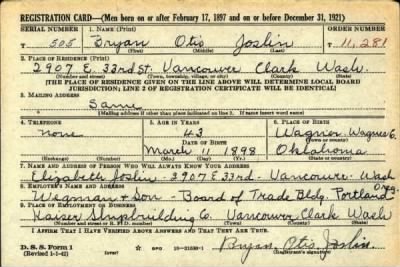 REGISTRATION CARD—(Men born on or after February 17, 1897 and on or before December 31, 1921)
SERIAL NUMBER 1. NAME (Print) ORDER NUMBER
T 505 Bryan Otis Joslin T 11,281
(First) (Middle) (Last)
2. PLACE OF RESIDENCE (Print)
2907 E. 33rd St. Vancouver Clark Wash.
(Number and street) (Town, township, village, or city) (County) (State)
[THE PLACE OF RESIDENCE GIVEN ON THE LINE ABOVE WILL DETERMINE LOCAL BOARD
JURISDICTION; LINE 2 OF REGISTRATION CERTIFICATE WILL BE IDENTICAL]
3. MAILING ADDRESS
Same
[Mailing address if other than place indicated on line 2. If same insert word same]
4. TELEPHONE 5. AGE IN YEARS 6. PLACE OF BIRTH
none 43 Wagner
DATE OF BIRTH (Town or county)
March 11 1898 Oklahoma
(Exchange) (Number) (Mo.) (Day) (Yr.) (State or country)
7. NAME AND ADDRESS OF PERSON WHO WILL ALWAYS KNOW YOUR ADDRESS
Elizabeth Joslin - 2907 E. 33rd - Vancouver - Wash
8. EMPLOYER'S NAME AND ADDRESS
Wegman + Son - Board of Trade Bldg. Portland Oreg.
9. PLACE OF EMPLOYMENT OR BUSINESS
Kaiser Shipbuilding Co. Vancouver Clark Wash
(Number and street or R. F. D. number) (Town) (County) (State)
I AFFIRM THAT I HAVE VERIFIED ABOVE ANSWERS AND THAT THEY ARE TRUE.
D. S. S. Form 1
(Revised 1-1-42) GPO Bryan Otis Joslin
(Registrant's signature)